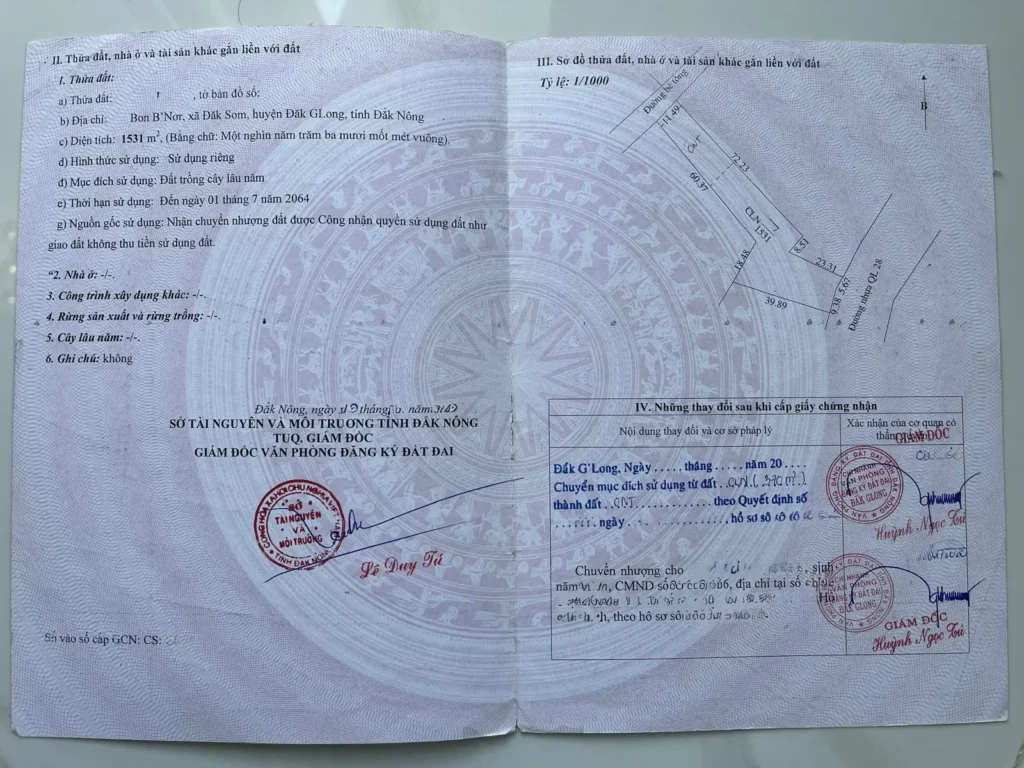 II. Thửa đất, nhà ở và tài sản khác gắn liền với đất
1. Thửa đất:
a) Thửa đất: , tờ bản đồ số:
b) Địa chỉ: Bon B'Nơr, xã Đắk Som, huyện Đăk GLong, tỉnh Đắk Nông
c) Diện tích: 1531 m², (Bằng chữ: Một nghìn năm trăm ba mươi mốt mét vuông).
d) Hình thức sử dụng: Sử dụng riêng
đ) Mục đích sử dụng: Đất trồng cây lâu năm
e) Thời hạn sử dụng: Đến ngày 01 tháng 7 năm 2064
g) Nguồn gốc sử dụng: Nhận chuyển nhượng đất được Công nhận quyền sử dụng đất như
giao đất không thu tiền sử dụng đất.
“2. Nhà ở: -/-.
3. Công trình xây dựng khác: -/-.
4. Rừng sản xuất và rừng trồng: -/-.
5. Cây lâu năm: -/-.
6. Ghi chú: không
Đắk Nông, ngày tháng năm
SỞ TÀI NGUYÊN VÀ MÔI TRƯỜNG TỈNH ĐẮK NÔNG
TUQ. GIÁM ĐỐC
GIÁM ĐỐC VĂN PHÒNG ĐĂNG KÝ ĐẤT ĐAI
SỞ
TÀI NGUYÊN
VÀ
MÔI TRƯỜNG
TỈNH ĐẮK NÔNG
Lê Duy Tú
Số vào sổ cấp GCN: CS:
III. Sơ đồ thửa đất, nhà ở và tài sản khác gắn liền với đất
Tỷ lệ: 1/1000
B
Đường bê tông
11.49
ONT
72.23
60.37
CLN
1531
8.51
23.31
18.48
39.89
5.67
9.38
Đường nhựa QL 28
IV. Những thay đổi sau khi cấp giấy chứng nhận
Nội dung thay đổi và cơ sở pháp lý
Xác nhận của cơ quan có
thẩm quyền
GIÁM ĐỐC
Đắk G'Long, Ngày ..... tháng ..... năm 20 ....
Chuyển mục đích sử dụng từ đất
thành đất ONT theo Quyết định số
ngày hồ sơ số
CHI NHÁNH
VĂN PHÒNG
ĐĂNG KÝ ĐẤT ĐAI
ĐẮK GLONG
Huỳnh Ngọc Tú
Chuyển nhượng cho , sinh
năm , CMND số , địa chỉ tại số
, theo hồ sơ số
CHI NHÁNH
VĂN PHÒNG
ĐĂNG KÝ ĐẤT ĐAI
ĐẮK GLONG
GIÁM ĐỐC
Huỳnh Ngọc Tú